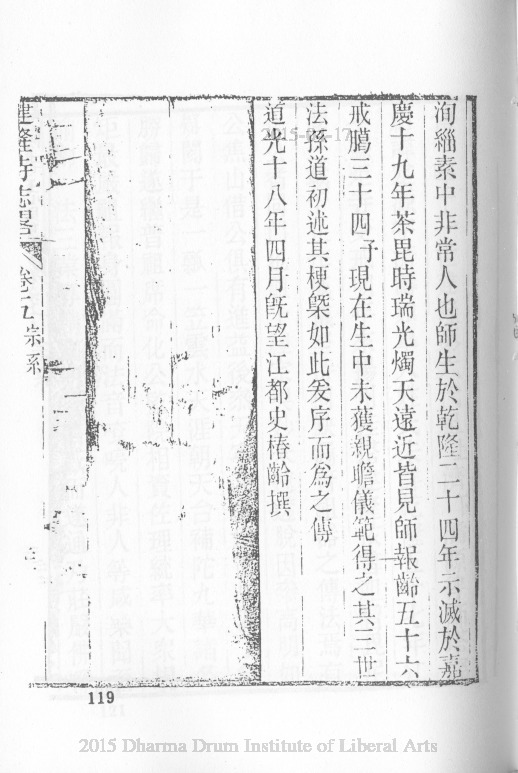 洵緇素中非常人也師生於乾隆二十四年示滅於嘉
慶十九年茶毘時瑞光燭天遠近皆見師報齡五十六
戒臈三十四予現在生中未獲親瞻儀範得之其三世
法孫道初述其梗槩如此爰序而爲之傳
道光十八年四月旣望江都史椿齡撰
建隆寺志畧 卷五 宗系
119
2015 Dharma Drum Institute of Liberal Arts